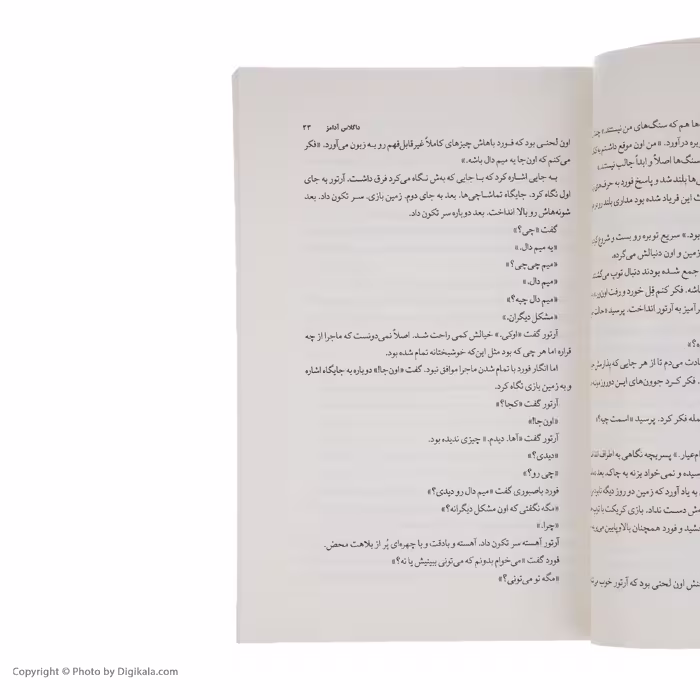 داگلاس آدامز ۲۳
اون لحنی بود که فورد باهاش چیزهای کاملاً غیرقابل‌فهم رو به زبون می‌آورد. «فکر
می‌کنم که اون‌جا یه میم دال باشه.»
به جایی اشاره کرد که با جایی که بهش نگاه می‌کرد فرق داشت. آرتور به جای
اول نگاه کرد. جایگاه تماشاچی‌ها. بعد به جای دوم. زمین بازی. سر تکون داد. بعد
شونه‌هاش رو بالا انداخت. بعد دوباره سر تکون داد.
گفت «چی؟»
«یه میم دال.»
«میم چی‌چی؟»
«میم دال.»
«میم دال چیه؟»
«مشکل دیگران.»
آرتور گفت «اوکی.» خیالش کمی راحت شد. اصلاً نمی‌دونست که ماجرا از چه
قراره اما هر چی که بود مثل این‌که خوشبختانه تمام شده بود.
اما انگار فورد با تمام شدن ماجرا موافق نبود. گفت «اون‌جا!» دوباره به جایگاه اشاره
و به زمین بازی نگاه کرد.
آرتور گفت «کجا؟»
«اون‌جا!»
آرتور گفت «آها. دیدم.» چیزی ندیده بود.
«دیدی؟»
«چی رو؟»
فورد باصبوری گفت «میم دال رو دیدی؟»
«مگه نگفتی که اون مشکل دیگرانه؟»
«چرا.»
آرتور آهسته سر تکون داد. آهسته و بادقت و با چهره‌ای پُر از بلاهت محض.
فورد گفت «می‌خوام بدونم که می‌تونی ببینیش یا نه؟»
«مگه تو می‌تونی؟»
ها هم که سنگ‌های من نیستند.»
بره درآورد. «من اون موقع داشتم
سنگ‌ها اصلاً و ابداً جالب نیستند.
ها بلند شد و پاسخ فورد به
این فریاد شده بود مداری بلند
بود.» سریع توبره رو بست و شروع
زمین و اون دنبالش می‌گرده.
جمع شده بودند دنبال توپ می‌گشت
باشه. فکر کنم قِل خورد و رفت
آمیز به آرتور انداخت. پرسید
می‌دم تا از هر جایی که
فکر کرد جوون‌های این دوروزمونه
فکر کرد. پرسید «اسمت چیه؟»
پسربچه نگاهی به اطراف
و نمی‌خواد بزنه به چاک.
به یاد آورد که زمین دو روز دیگه
دست نداد. بازی کریکت با
و فورد همچنان بالا و پایین
اون لحنی بود که آرتور خوب
Copyright © Photo by Digikala.com